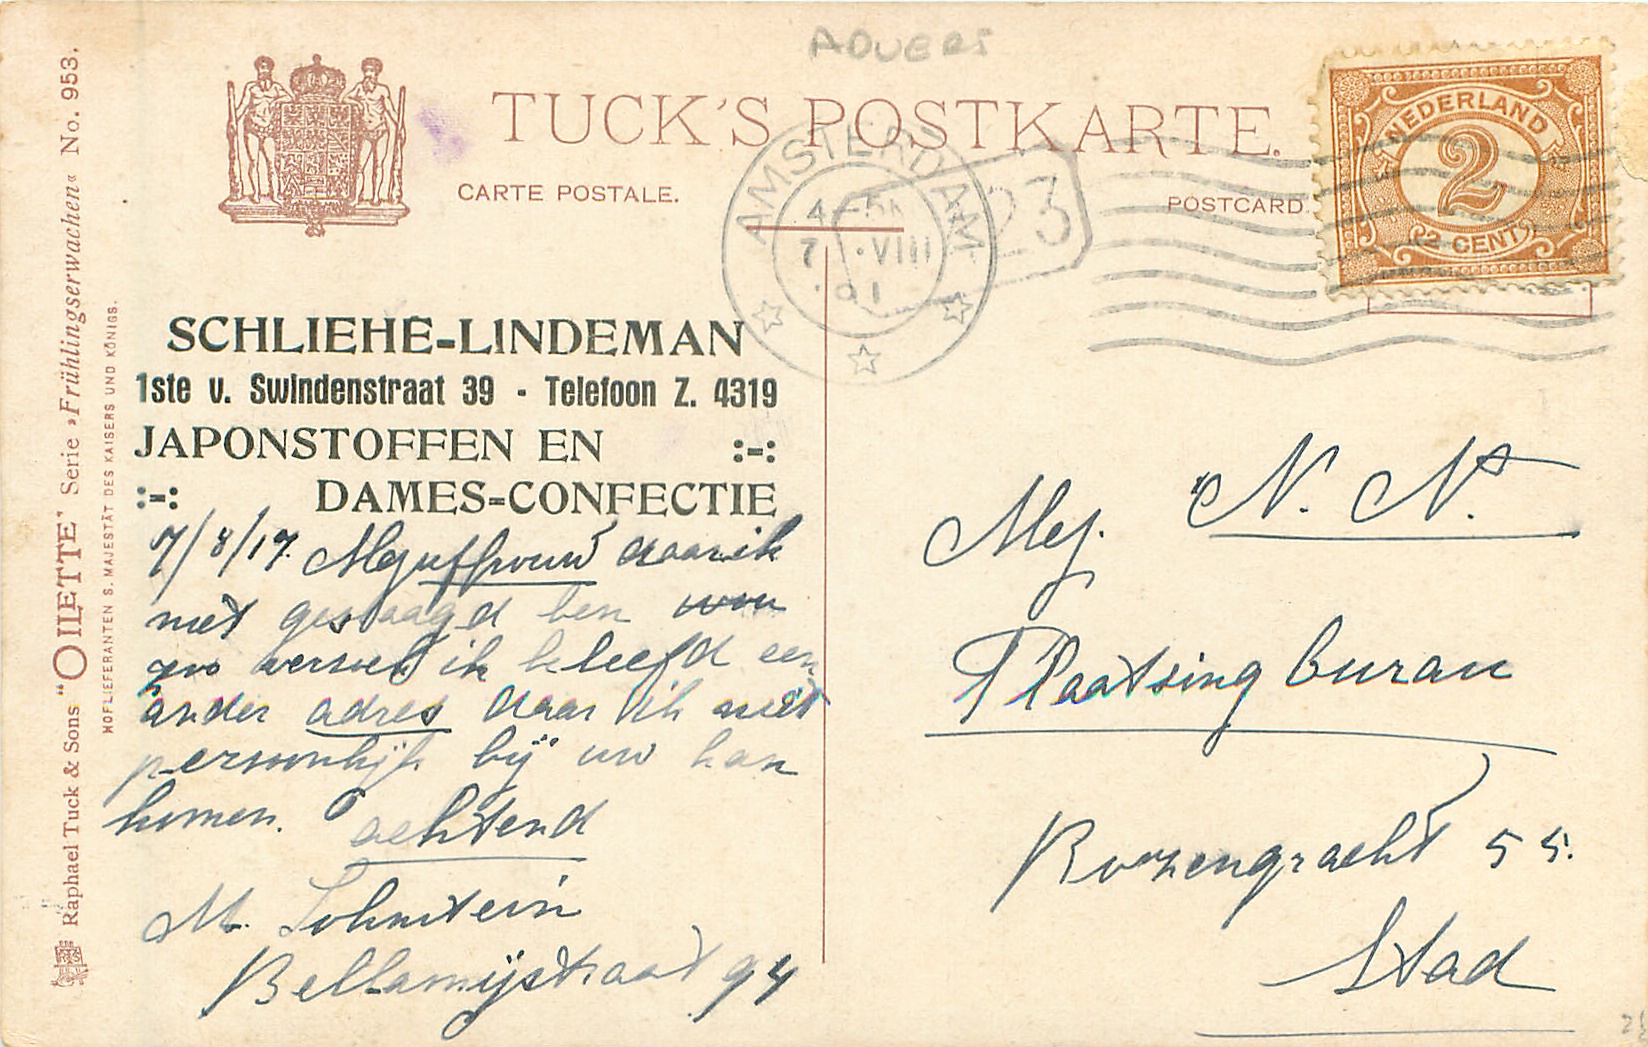 ADVERT
TUCK'S POSTKARTE.
CARTE POSTALE.
POSTCARD.
NEDERLAND
2
(2 CENT)
AMSTERDAM
4-5N
7 .VIII
23
Raphael Tuck & Sons "OILETTE" Serie »Frühlingserwachen« No. 953.
HOFLIEFERANTEN S. MAJESTÄT DES KAISERS UND KÖNIGS.
SCHLIEHE-LINDEMAN
1ste v. Swindenstraat 39 - Telefoon Z. 4319
JAPONSTOFFEN EN :-:
:-: DAMES-CONFECTIE
7/8/17. Mejuffrouw daar ik
niet geslaagd ben
zoo verzoek ik beleefd een
ander adres daar ik niet
persoonlijk bij uw kan
komen. achtend
M. Lohnstein
Bellamijstraat 94
Mej. N. N.
Plaatsing burau
Rozengracht 55.
Stad